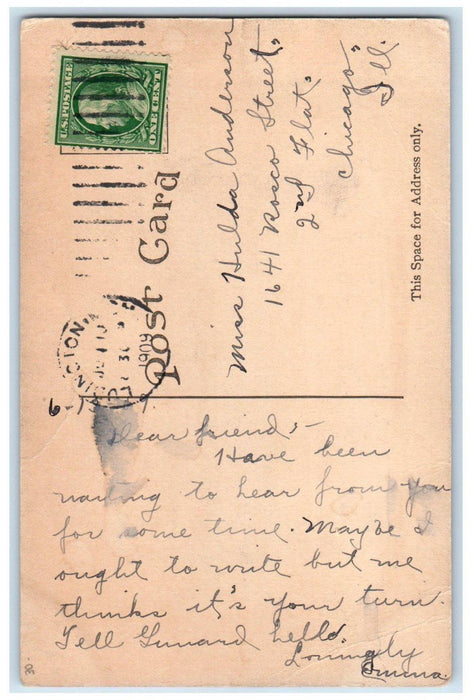 U.S. POSTAGE
ONE CENT
1909
Post Card
Miss Hulda Anderson
1641 Rosco Street,
2nd Flat,
Chicago,
Ill.
This Space for Address only.
Dear friend:-
Have been
waiting to hear from you
for some time. Maybe I
ought to write but me
thinks it's your turn.
Tell Gunard hello.
Lovingly
Emma.